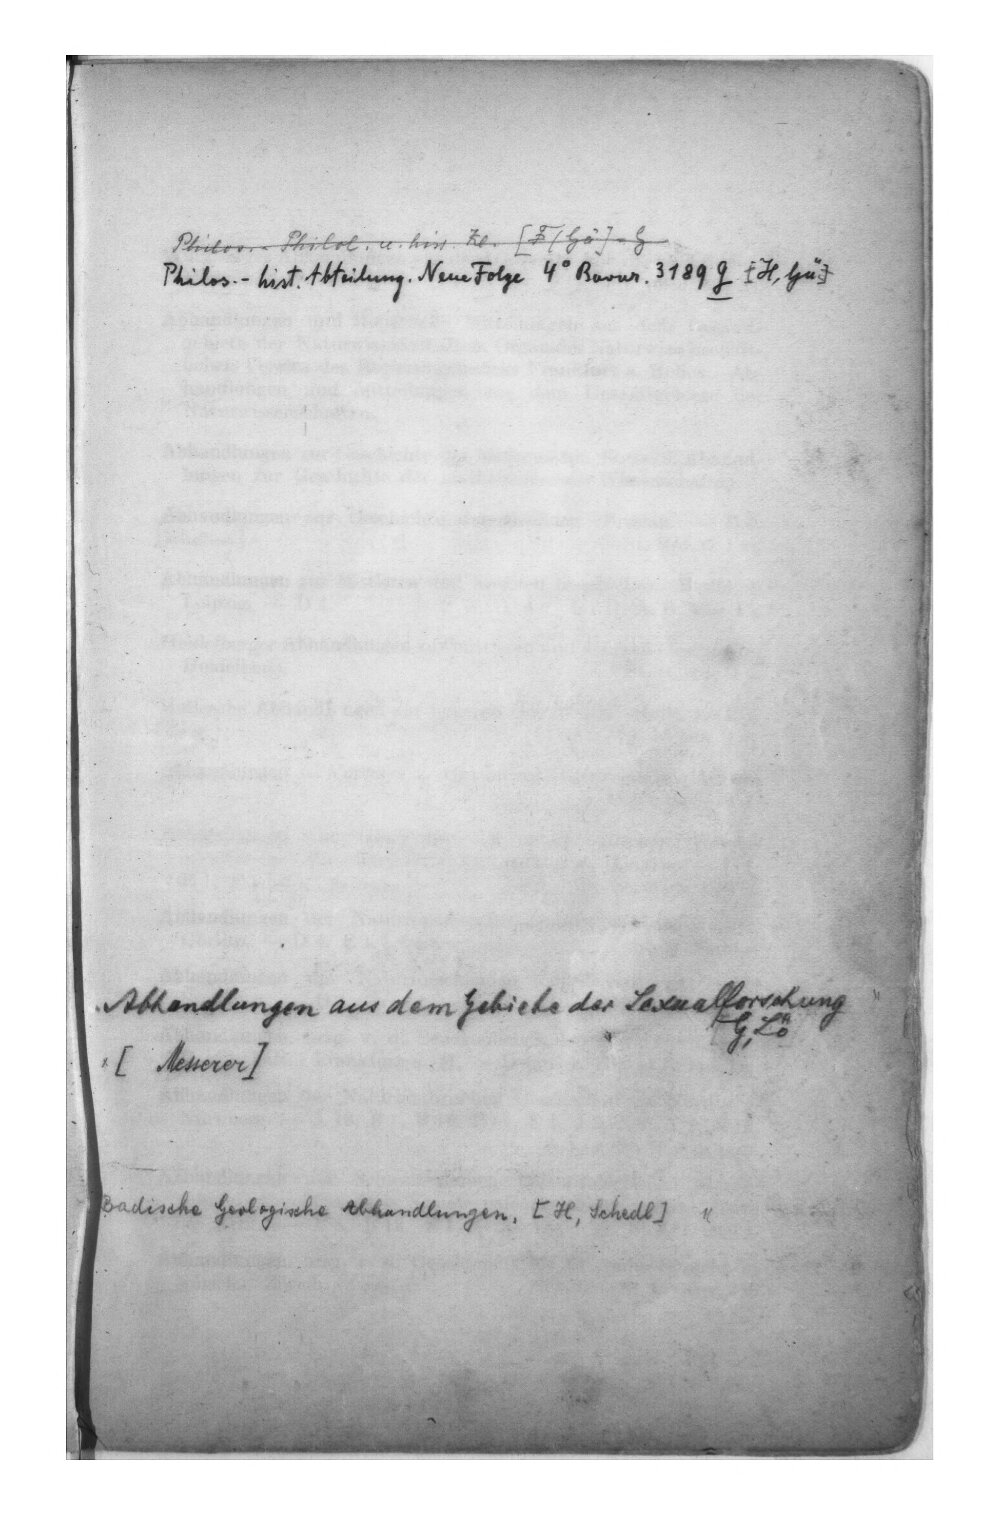 Philos.- Philol. u. hist. Kl. [F/Gö] - G
Philos.- hist. Abteilung. Neue Folge 4° Bavar. 3189 g [H, Gü]
Abhandlungen aus dem Gebiete der Sexualforschung "
[G, Lö
x [ Messerer]
Badische Geologische Abhandlungen. [H, Schedl] "